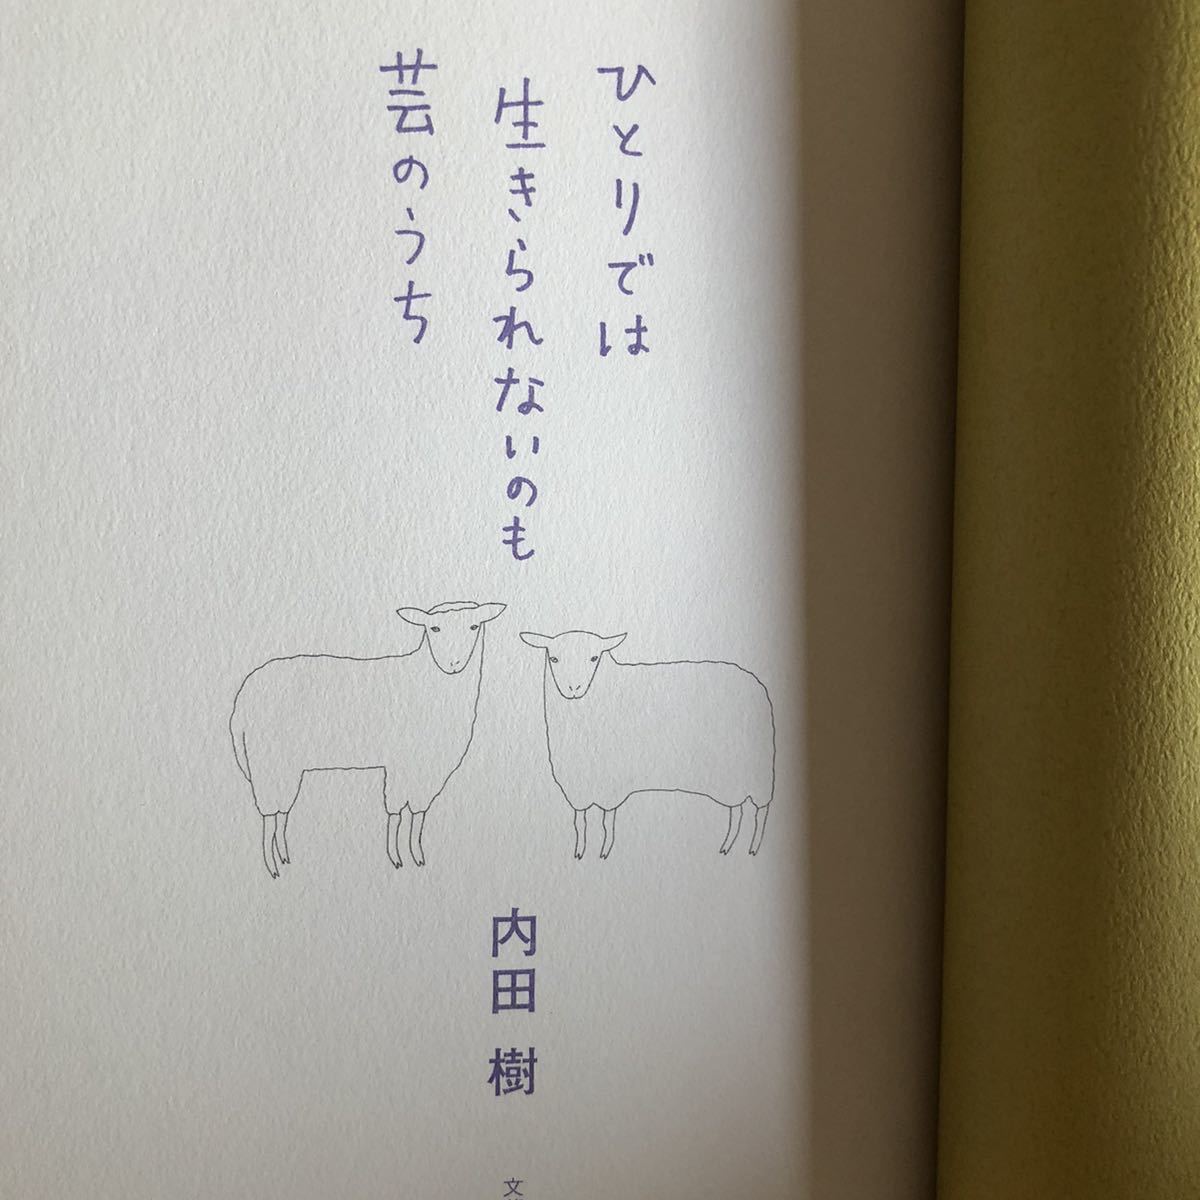 ひとりでは
生きられないのも
芸のうち
内田 樹
文